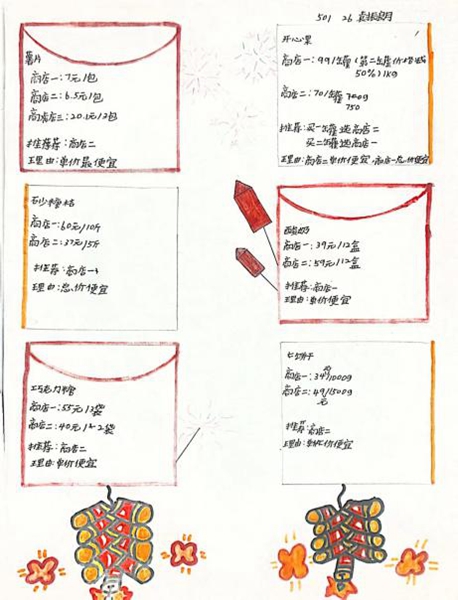 501 26
薯片
商店一:7元/1包
商店二:6.5元/1包
商店三:20.1元/3包
推荐:商店二
理由:单价最便宜
开心果
商店一:99/罐(第二罐价格减
50%)1kg
商店二:70/罐
750
推荐:买一罐选商店二
买二罐选商店一
理由:商店二单价便宜,商店一总价便宜
砂糖桔
商店一:60元/10斤
商店二:37元/5斤
推荐:商店一
理由:总价便宜
酸奶
商店一:39元/12盒
商店二:59元/12盒
推荐:商店一
理由:单价便宜
巧克力
商店一:55元/2袋
商店二:40元/2袋
推荐:商店二
理由:单价便宜
商店一:39/1000g
商店二:49/1500g
元
推荐:商店二
理由:单价便宜